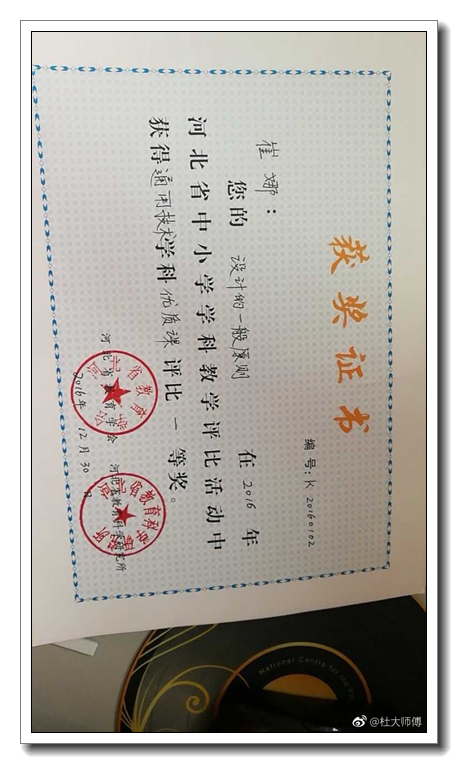 获奖证书
编号:K 20160102
崔娜:
您的 设计的一般原则 在2016年
河北省中小学学科教学评比活动中
获得通用技术学科优质课评比一等奖。
河北省教育学会 河北省教育科学研究所
2016年12月30日
National Centre for the
@杜大师傅